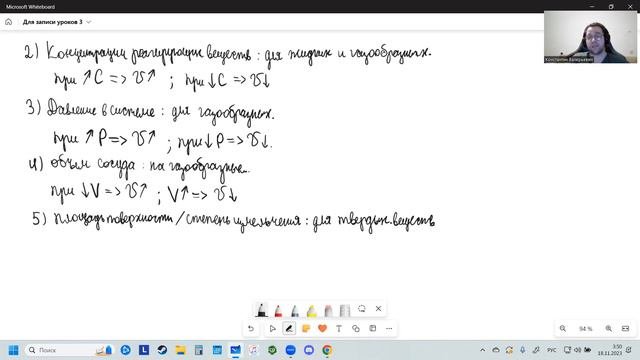 Microsoft Whiteboard
Для записи уроков 3
Константин Валерьевич
2) Концентрации реагирующих веществ: для жидких и газообразных.
при ↑ C => υ↑ ; при ↓ C => υ↓
3) Давление в системе: для газообразных.
при ↑ P => υ↑ ; при ↓ P => υ↓.
4) объём сосуда: на газообразные..
при ↓V => υ↑ ; V↑ => υ↓
5) площадь поверхности/степень измельчения: для твердых. веществ
94 %
Поиск
РУС
3:50
18.11.2023